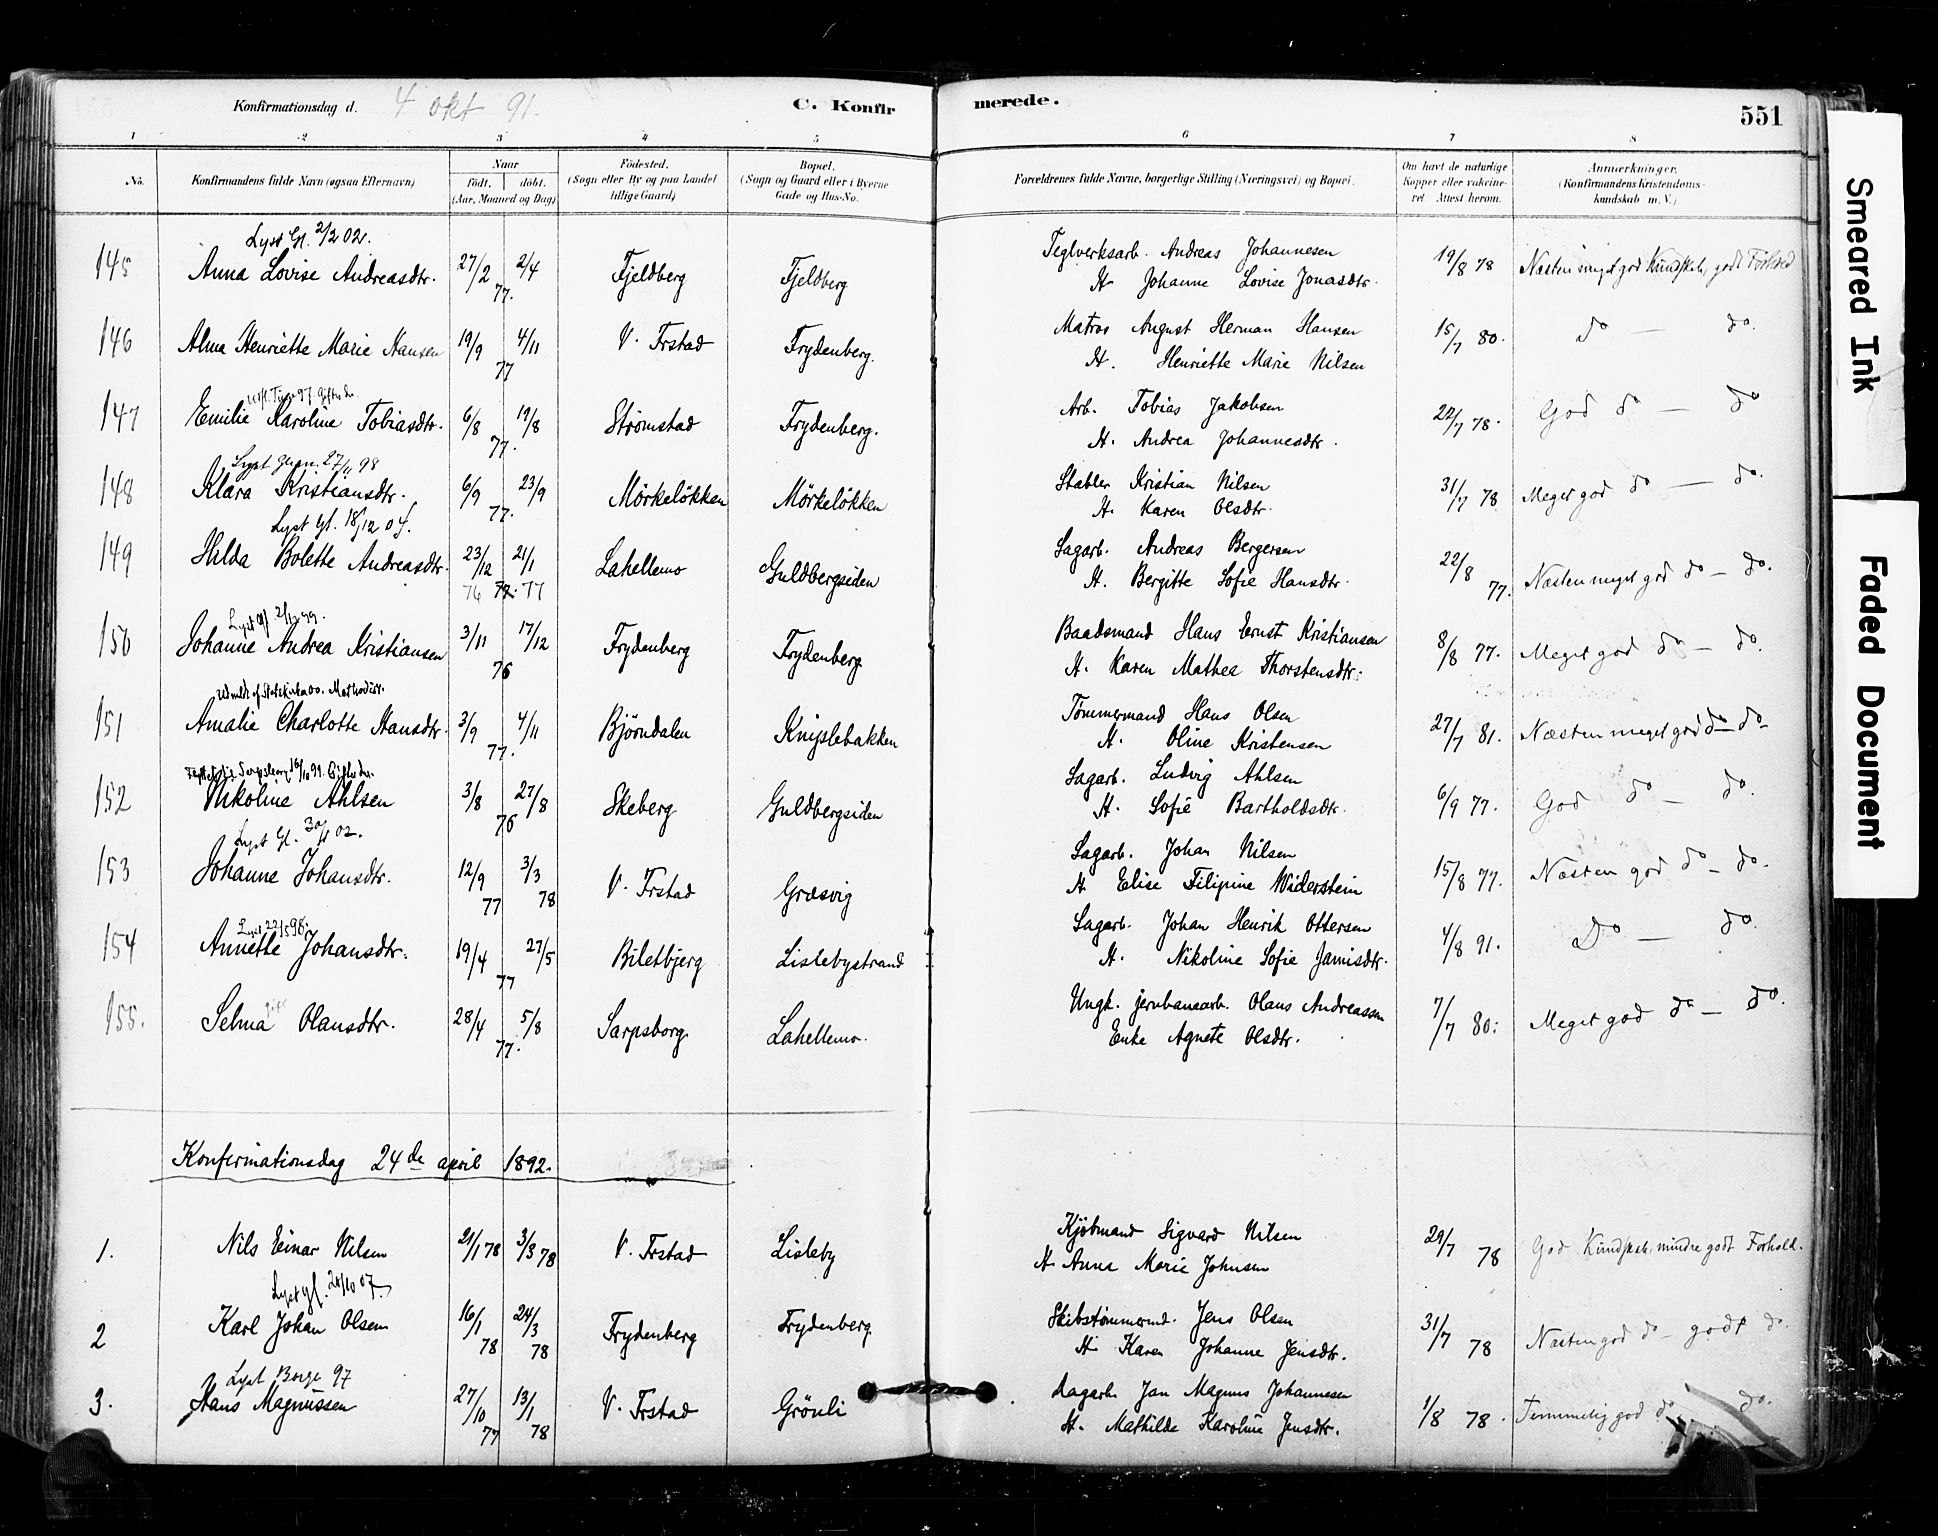 Konfirmationsdag d. 4 okt 91. C. Konfirmerede. 551
1 2 3 4 5 6 7 8
No. Konfirmandens fulde Navn (ogsaa Efternavn) Naar födt. döbt. (Aar, Maaned og Dag) Födested. (Sogn eller By og paa Landet tillige Gaard) Bopæl. (Sogn og Gaard eller i Byerne Gade og Hus-No. Forældrenes fulde Navne, borgerlige Stilling (Næringsvei) og Bopæl. Om havt de naturlige Kopper eller vaccineret Attest herom. Anmærkninger. (Konfirmandens Kristendomskundskab m. V.)
Lyst Gl. 2/2 02.
145 Anna Lovise Andreasdtr. 27/2 2/4 77. Fjeldberg Fjeldberg Teglverksarb. Andreas Johannesen
H. Johanne Lovise Jonasdtr. 19/8 78 Næsten meget god Kundskab, godt Forhold
146 Alma Henriette Marie Hansen 19/9 4/11 77 V. Frstad Frydenberg. Matros August Herman Hansen
H. Henriette Marie Nilsen 15/7 80. do — do.
147 Emilie Karoline Tobiasdtr. 6/8 19/8 77. Strømstad Frydenberg. Arb. Tobias Jakobsen
H. Andrea Johannesdtr. 22/7 78. God do — do
27/11 98
148 Klara Kristiansdtr. 6/9 23/9 77. Mörkelökken Mörkelökken Stabler Kristian Nilsen
H. Karen Olsdtr. 31/7 78 Meget god do — do.
Lyst Gl. 18/12 04.
149 Hilda Bolette Andreasdtr. 23/12 76 21/1 77 Lahellemo Guldbergsiden Sagarb. Andreas Bergersen
H. Bergitte Sofie Hansdtr. 22/8 77. Næsten meget god do — do.
150 Johanne Andrea Kristiansen 3/11 17/12 76 Frydenberg Frydenberg Baadsmand Hans Ernst Kristiansen
H. Karen Mathea Thorstensdtr. 8/8 77. Meget god do — do.
Udmeldt af Statskirken 00. Methodist.
151 Amalie Charlotte Hansdtr. 3/9 4/11 77. Bjørndalen Knipslebakken Tømmermand Hans Olsen
H. Oline Kristensen 27/7 81. Næsten meget god do — do
152 Nikoline Ahlsen 3/8 27/8 76 Skeberg Guldbergsiden Sagarb. Ludvig Ahlsen
H. Sofie Bartholdsdtr. 6/9 77. God do — do.
Lyst Gl. 02.
153 Johanne Johansdtr. 12/9 77 3/3 78 V. Frstad Græsvig Sagarb. Johan Nilsen
H. Elise Filipine Widerstein 15/8 77. Næsten god do — do.
Lyst 22/5 98.
154 Annette Johansdtr. 19/4 27/5 77 Biletbjerg Lislebystrand Sagarb. Johan Henrik Ottersen
H. Nikoline Sofie Jamisdtr. 4/8 91. Do — do.
155. Selma Olausdtr. 28/4 5/8 77. Sarpsborg Lahellemo. Ungk. jernbanearb. Olaus Andreassen
Enke Agnete Olsdtr. 7/7 80. Meget god do — do.
Konfirmationsdag 24de april 1892.
1. Nils Einar Nilsen 21/1 78 3/3 78 V. Frstad Lisleby Kjöbmand Sigvard Nilsen
H. Anna Marie Johnsen 29/7 78 God Kundskab, mindre godt Forhold.
2 Karl Johan Olsen 16/1 78 24/3 78 Frydenberg Frydenberg Skibstømmermd. Jens Olsen
H. Karen Johanne Jensdtr. 31/7 78 Næsten god do — godt do.
Lyst Borge 97
3. Hans Magnussen 27/10 77 13/1 78 V. Frstad Grönli Dagarb. Jan Magnus Johannesen
H. Mathilde Karoline Jensdtr. 1/8 78. Temmelig god do do.
Smeared Ink
Faded Document